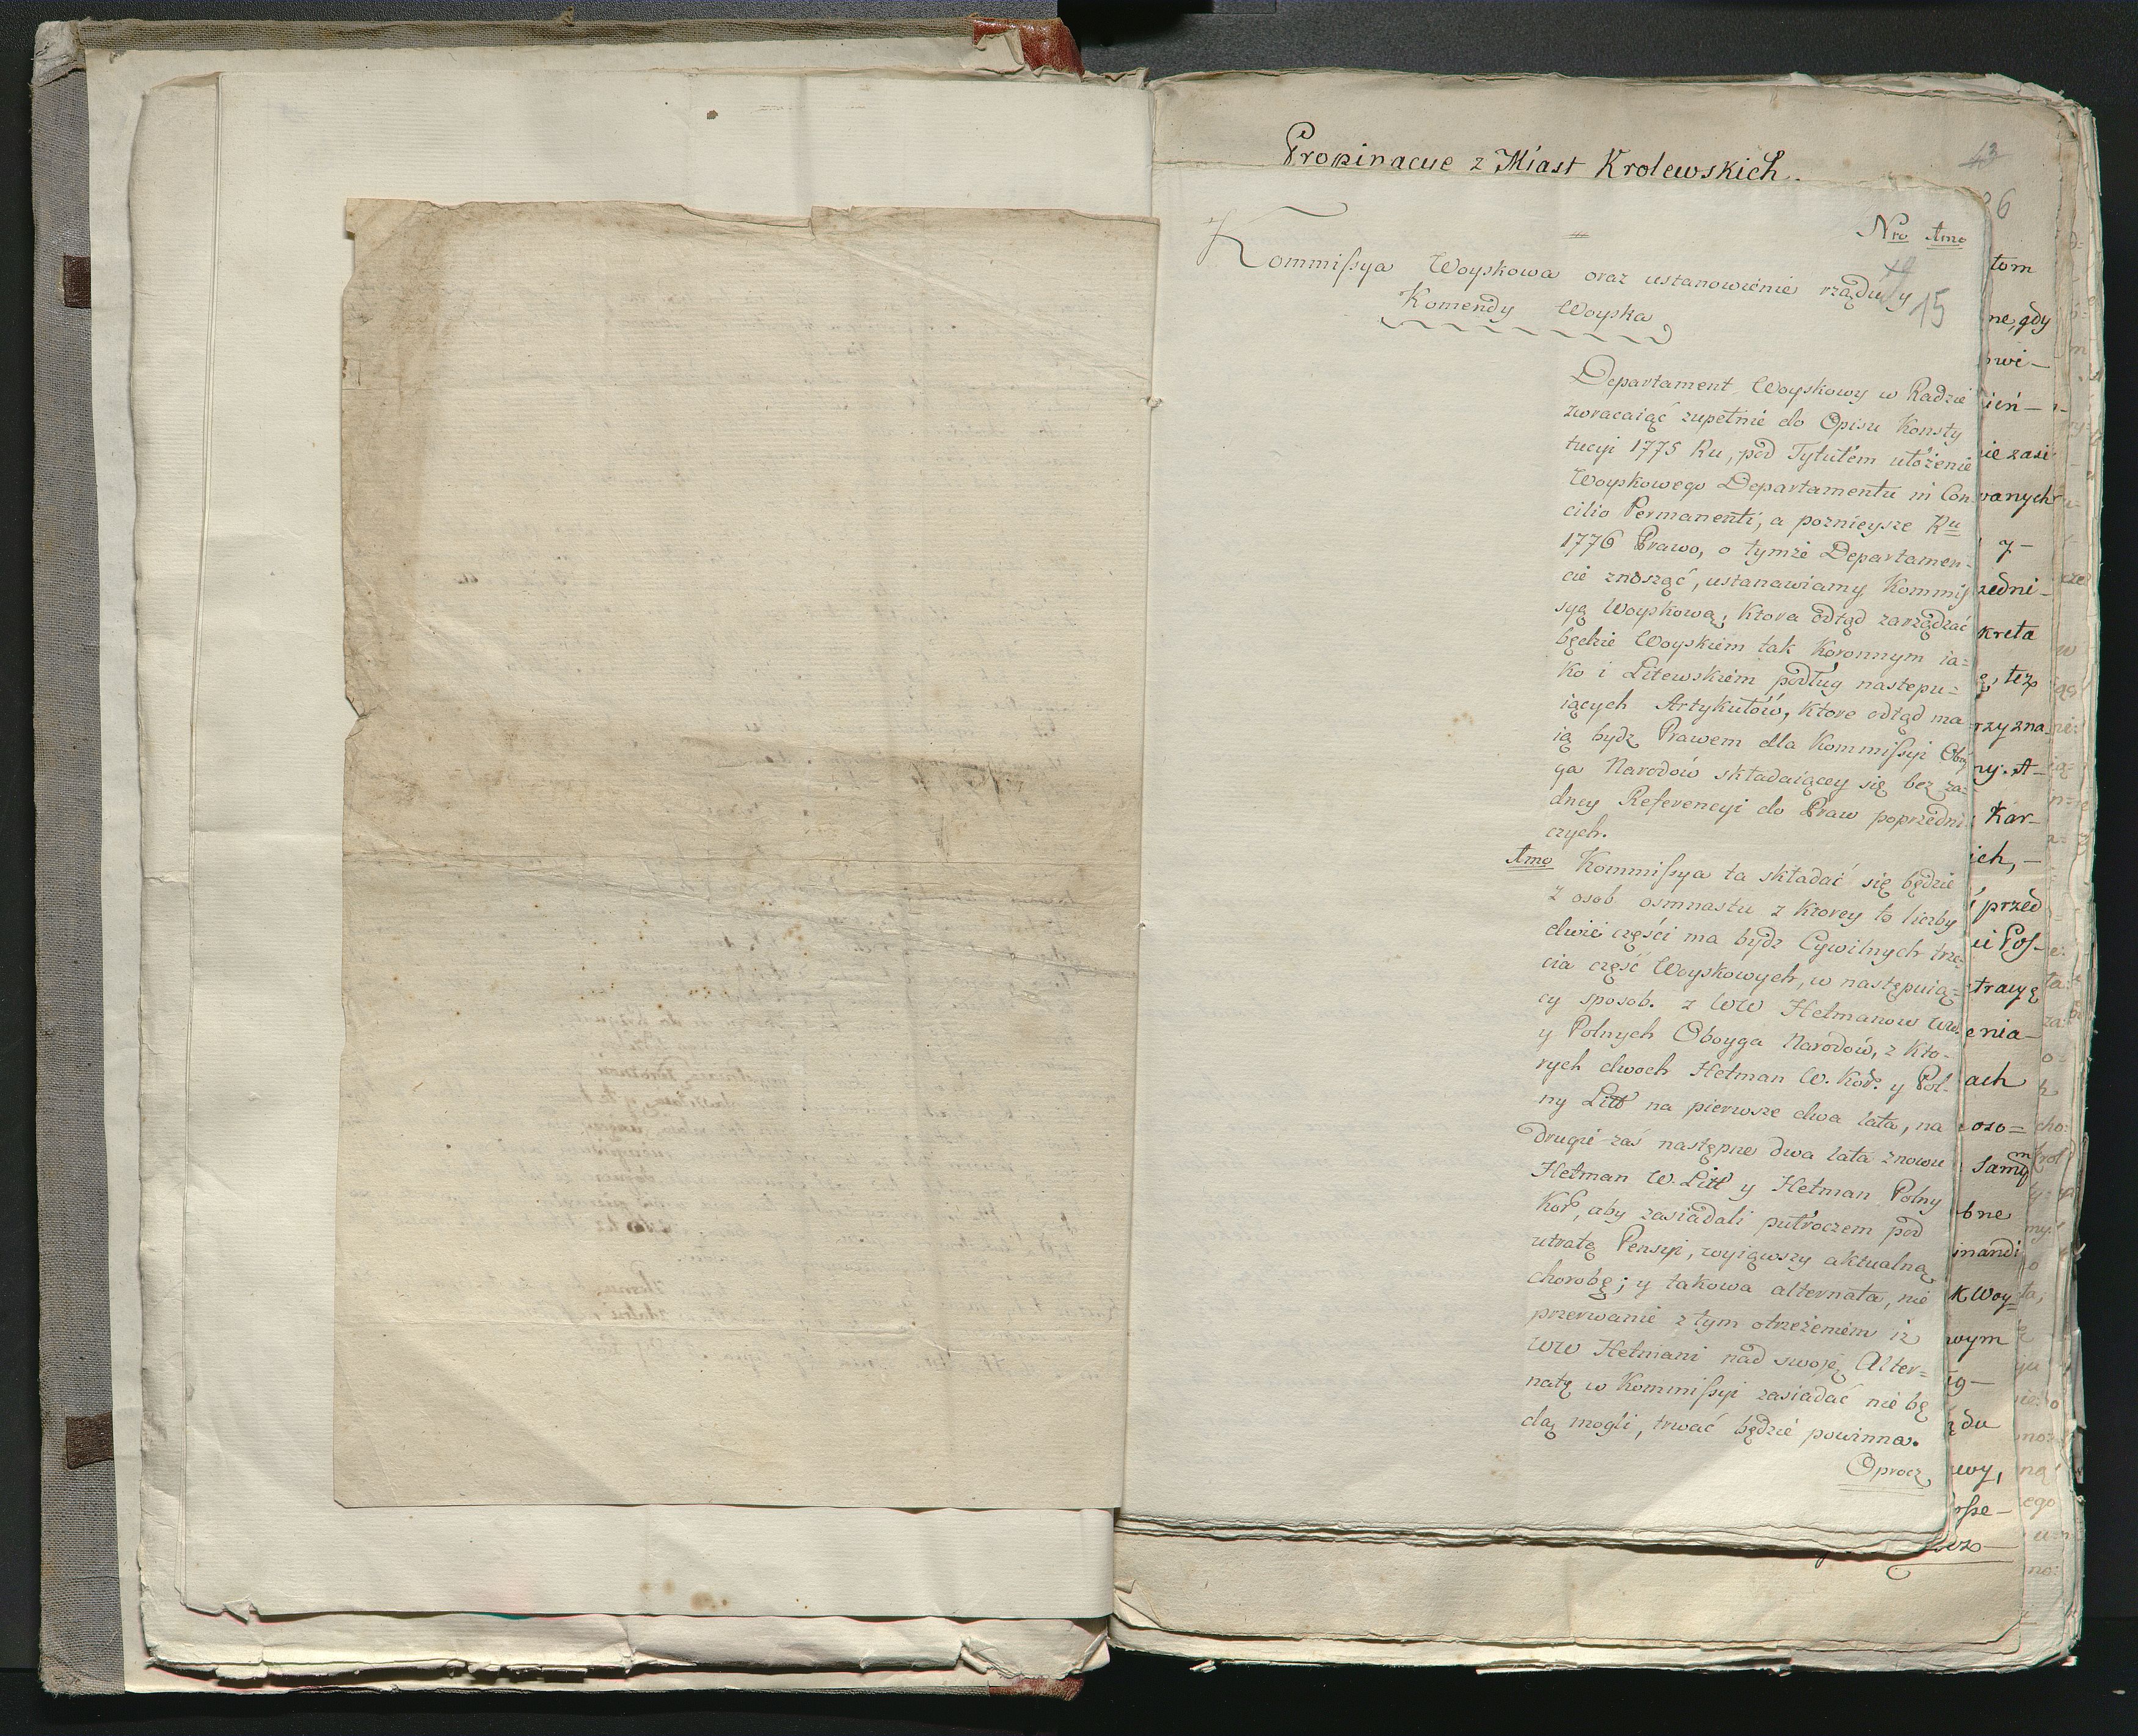 Propinacye z Miast Krolewskich.
43
Nro Amo
Kommissya Woyskowa oraz ustanowienie rządu y
15
Komendy Woyska
Departament Woyskowy w Radzie
zwracaiąc zupełnie do Opisu Konsty
tucyi 1775 Ru, pod Tytułem ułożenie
Woyskowego Departamentu in Con
cilio Permanenti, a poznieysze Ru
1776 Prawo, o tymże Departamen-
cie znosząć, ustanawiamy Kommis
syą Woyskową, ktora odtąd zarządzać
będzie Woyskiem tak Koronnym ia=
ko i Litewskiem podług nastepu=
iących Artykułów, ktore odtąd ma
ią bydz Prawem dla Kommissyi Oboy
ga Narodów składaiącey się bez ża=
dney Referencyi do Praw poprzedni
czych.
Amo Kommissya ta składać się będzie
z osob osmnastu z ktorey to liczby
dwie części ma bydz Cywilnych trze
cia część Woyskowych, w następuią=
cy sposob. z WW Hetmanow WW.
y Polnych Oboyga Narodów, z kto-
rych dwoch Hetman W. Kor. y Pol-
ny Litt na pierwsze dwa lata, na
drugie zaś następne dwa lata znowu
Hetman W. Litt y Hetman Polny
Kor, aby zasiadali pułroczem pod
utratą Pensyi, wyiąwszy aktualną
chorobę; y takowa alternata, nie
przerwanie z tym ostrzeżeniem iż
WW Hetmani nad swoję Alter=
natę w Kommissyi zasiadać nie bę
dą mogli, trwać będzie powinna.
Oprocz
tom
ne, gdy
wi-
ień-
ie zasi
wanych
y-
zedni-
kreta
też
rzyzna
ny. A-
Kar-
ich,-
przed
ui Pos-
tracyę
enia-
ach
oso=
samy
bne
inandi
k Woy=
wym
du